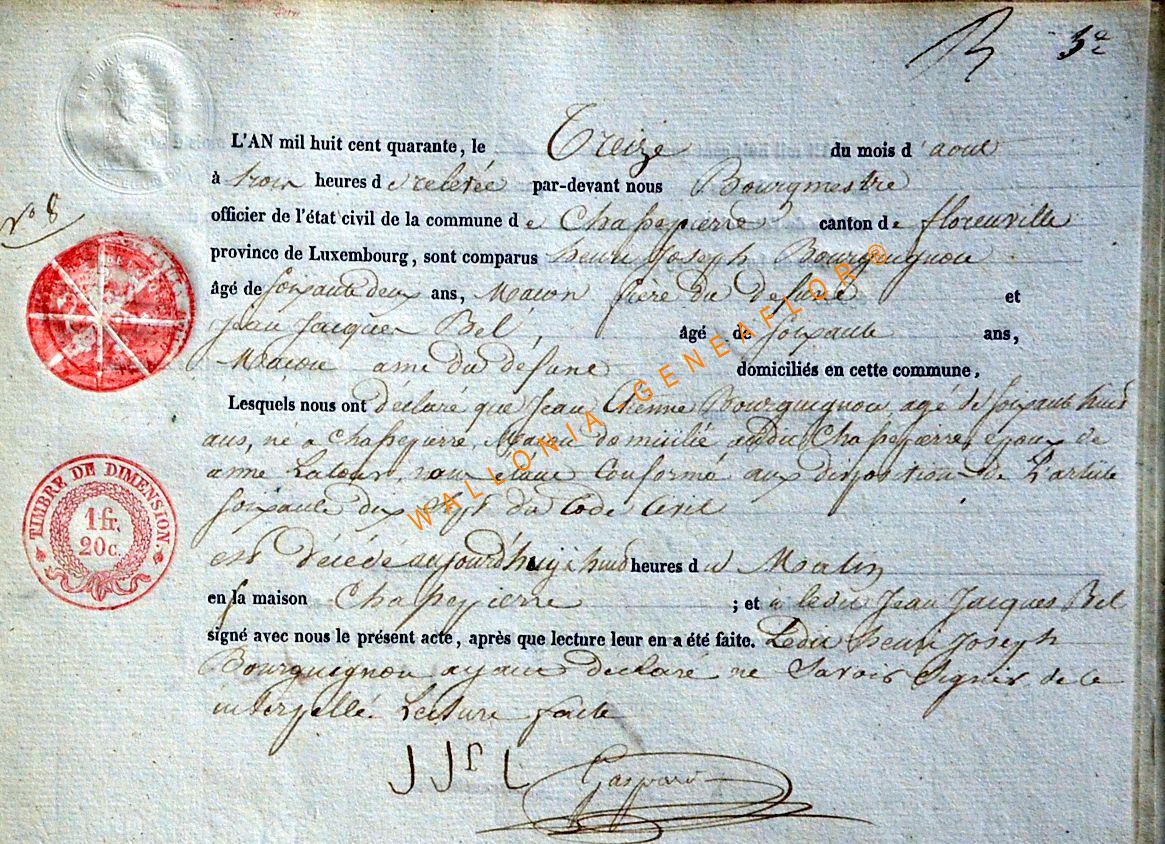 3e
L'AN mil huit cent quarante, le Treize du mois d'aout
à trois heures de relevée par-devant nous Bourgmestre
N° 8
officier de l'état civil de la commune de Chassepierre canton de florenville
province de Luxembourg, sont comparus henri Joseph Bourguignon
âgé de soixante deux ans, Maçon frère du defunt et
Jean Jacques Bel, âgé de soixante ans,
Maçon ami du defunt domiciliés en cette commune,
Lesquels nous ont déclaré que Jean Etienne Bourguignon agé de soixante huit
ans, né a Chassepierre, Maçon domicilié audit Chassepierre, epoux de
anne Latour, nous etant Conformé aux disposition de L'article
soixante dix sept du Code Civil
est décédé aujourd'huy à huit heures du Matin
en sa maison Chassepierre ; et a ledit Jean Jacques Bel
signé avec nous le présent acte, après que lecture leur en a été faite. Ledit henri Joseph
Bourguignon ayant declaré ne Savoir Signer de ce
interpellé. Lecture faite
Gaspard
TIMBRE DE DIMENSION.
1 fr.
20 c.
WALLONIA GENEAFLOR®